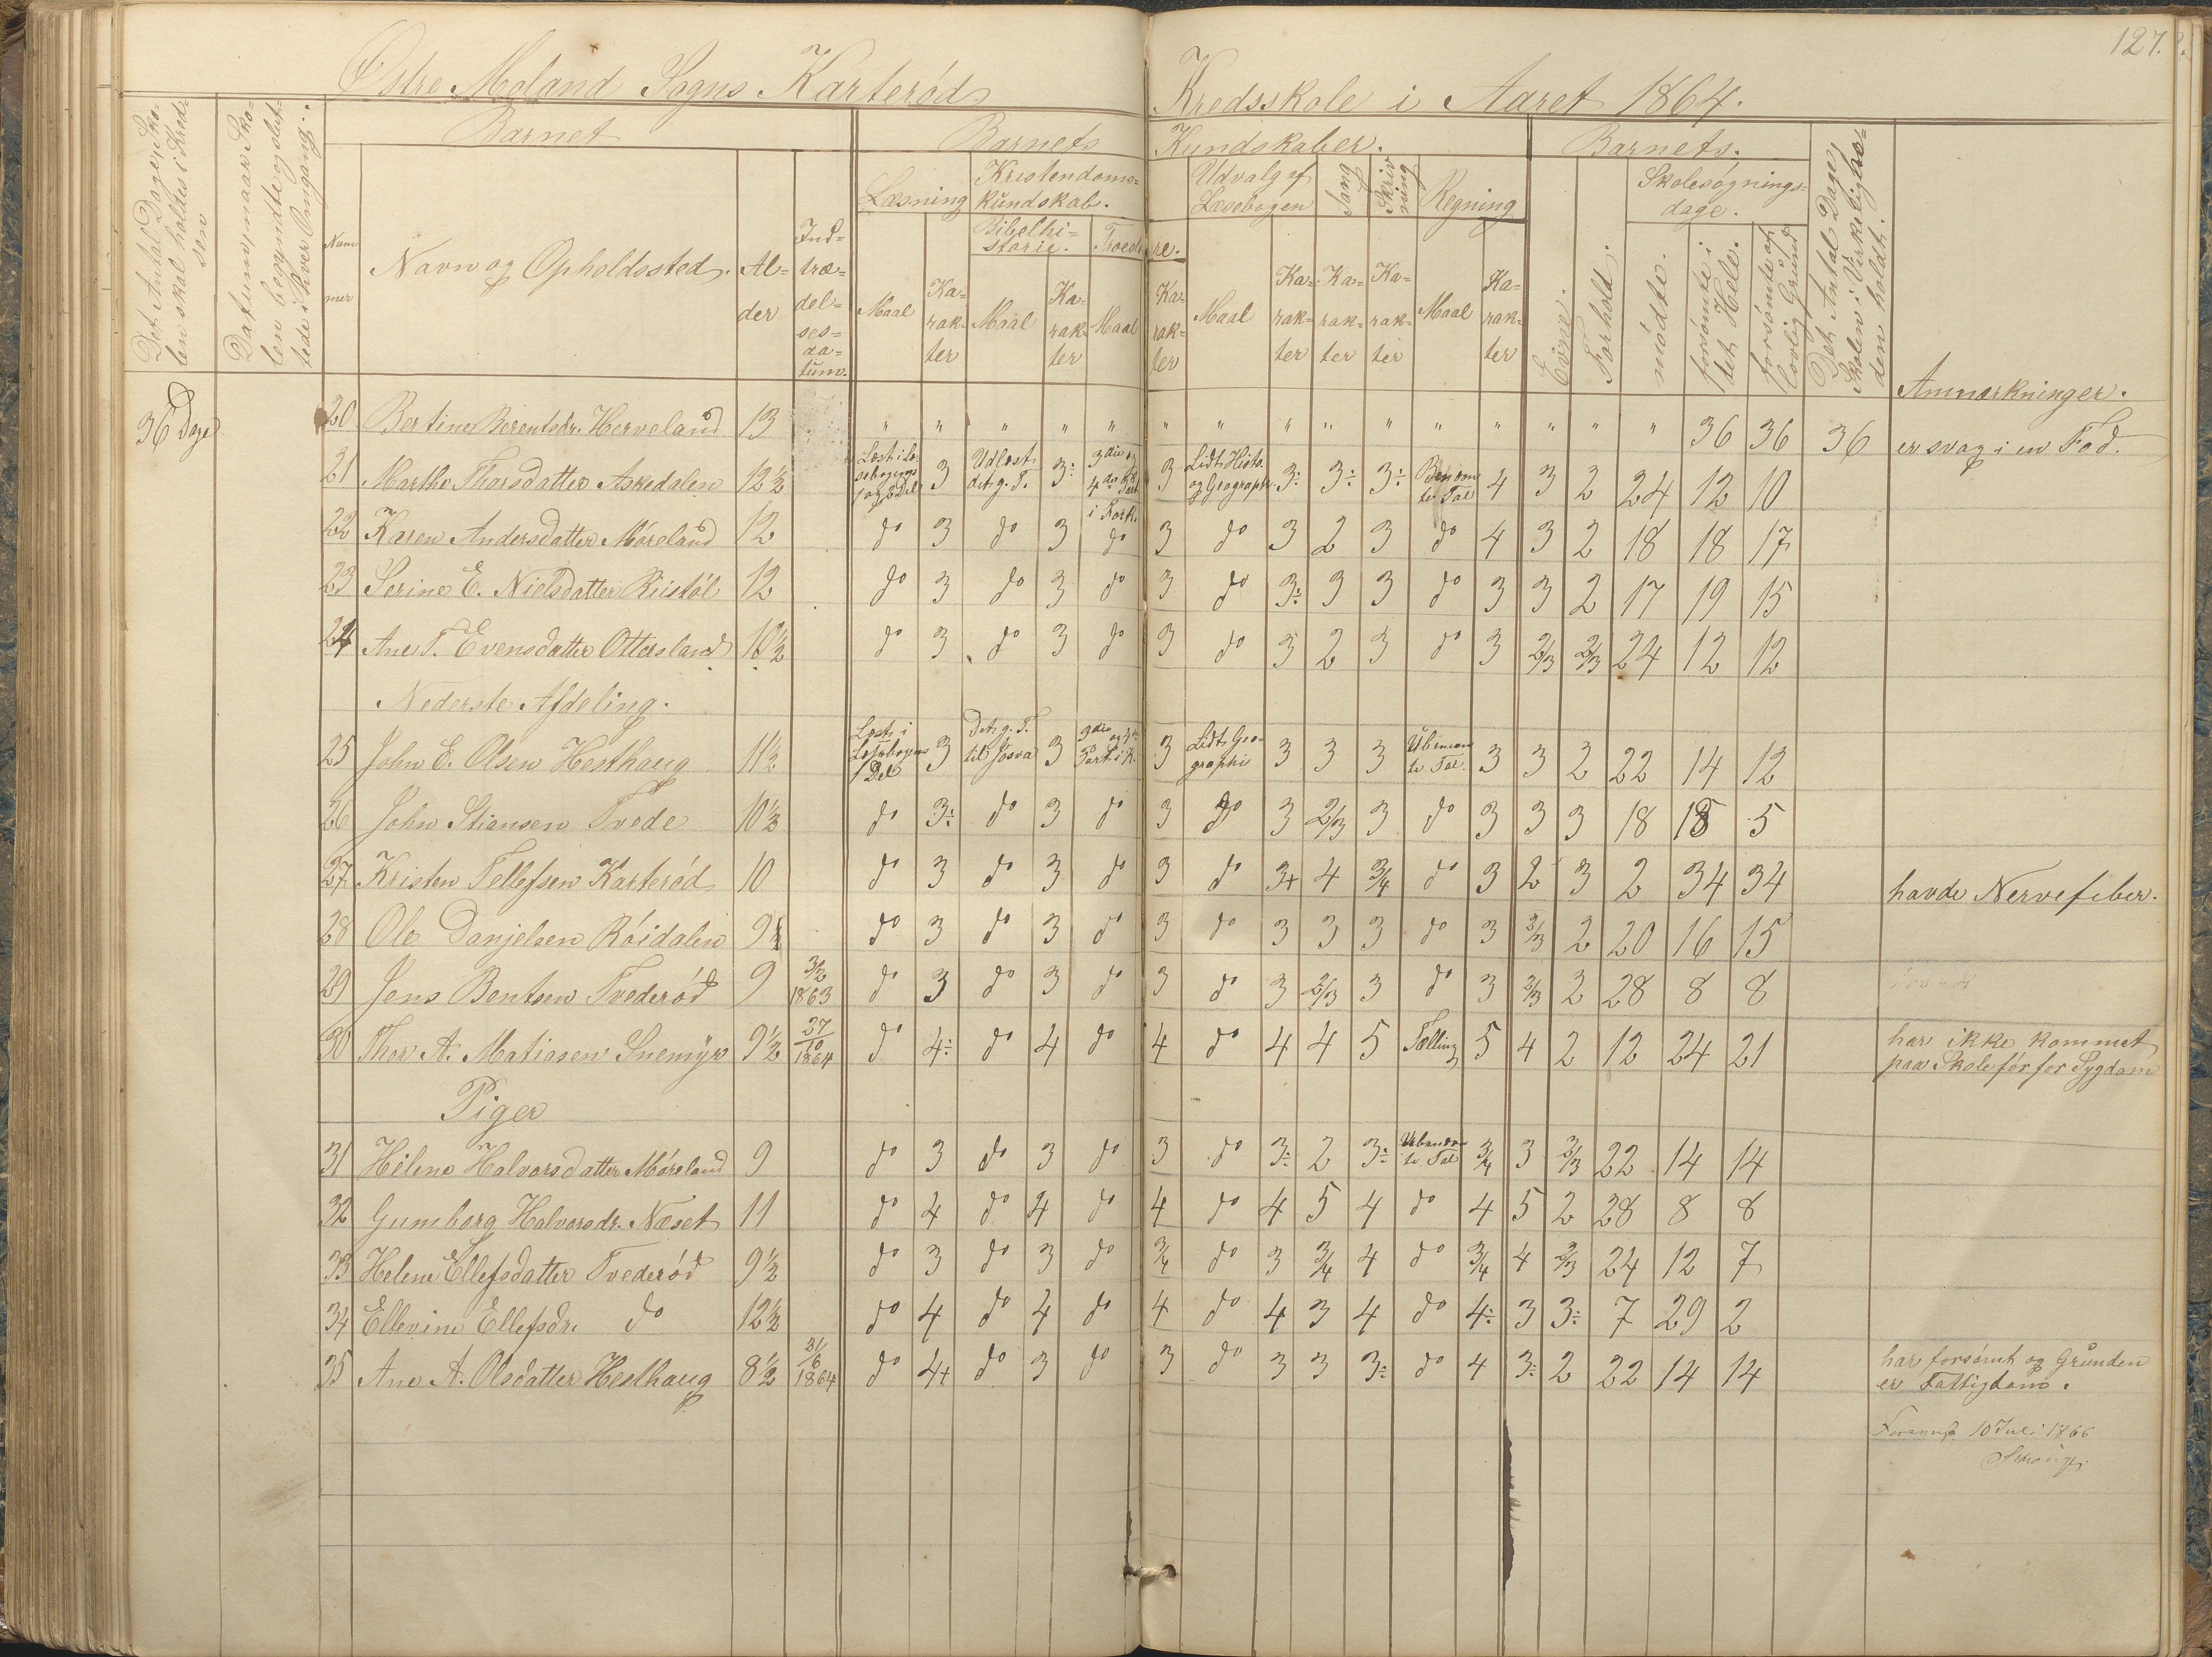 127.
Østre Moland Sogns Karterød Kredsskole i Aaret 1864.
Det Antal Dage, Skolen skal holdes i Kredsen
Datum, naar Skolen begyndte og sluttede i hver Omgang.
Barnet
Barnets Kundskaber.
Barnets.
Det Antal Dage, Skolen i Virkeligheden holdt.
Anmærkninger.
Nummer
Navn og Opholdssted.
Alder
Indtrædelsesdatum.
Læsning
Kristendomskundskab.
Bibelhistorie.
Troeslære.
Udvalg af Læsebogen
Sang
Skrivning
Regning
Evne.
Forhold.
Skolesøgningsdage.
mødte.
forsømte i det Hele.
forsømte af lovlig Grund
Maal Karakter Maal Karakter Maal Karakter Maal Karakter Karakter Karakter Maal Karakter
36 Dage
20 Bertine Berentsdr. Herveland 13 " " " " " " " " " " " " " " " 36 36 36 er svag i en Fod.
21 Marthe Thorsdatter Askedalen 12½ Læst i Læsebogens 1 og 2 Del 3 Udlæst det g. T. 3÷ 3die og 4de Part i Fork. 3 Lidt Histo. og Geograph. 3÷ 3÷ 3÷ Benævnte Tal 4 3 2 24 12 10
22 Karen Andersdatter Møreland 12 do 3 do 3 do 3 do 3 2 3 do 4 3 2 18 18 17
23 Serine E. Nielsdatter Riistøl 12 do 3 do 3 do 3 do 3÷ 3 3 do 3 3 2 17 19 15
24 Ane T. Evensdatter Ottersland 10½ do 3 do 3 do 3 do 3 2 3 do 3 2/3 2/3 24 12 12
Nederste Afdeling.
25 John E. Olsen Hesthaug 11½ Læst i Læsebogens 1 Del 3 Det g. T. til Josva 3 3die og 4de Part i F. 3 Lidt Geographi 3 3 3 Ubenævnte Tal. 3 3 2 22 14 12
26 John Stiansen Tvede 10½ do 3÷ do 3 do 3 do 3 2/3 3 do 3 3 3 18 18 5
27 Kristen Tellefsen Karterød 10 do 3 do 3 do 3 do 3+ 4 3/4 do 3 2 3 2 34 34 havde Nervefeber.
28 Ole Danjelsen Röidalen 9½ do 3 do 3 do 3 do 3 3 3 do 3 2/3 2 20 16 15
29 Jens Bentsen Tvederød 9 3/2 1863 do 3 do 3 do 3 do 3 2/3 3 do 3 2/3 2 28 8 8
30 Thor A. Matiasen Snemyr 9½ 27/10 1864 do 4÷ do 4 do 4 do 4 4 5 Tælling 5 4 2 12 24 21 har ikke kommet
paa Skole før for Sygdom
Piger
31 Helene Halvorsdatter Møreland 9 do 3 do 3 do 3 do 3÷ 2 3÷ Ubenævnte Tal 3/4 3 2/3 22 14 14
32 Gumborg Halvorsdr. Næset 11 do 4 do 4 do 4 do 4 5 4 do 4 5 2 28 8 8
33 Helene Ellefsdatter Tvederød 9½ do 3 do 3 do 3/4 do 3 3/4 4 do 3/4 4 2/3 24 12 7
34 Ellevine Ellefsdr. do 12½ do 4 do 4 do 4 do 4 3 4 do 4÷ 3 3÷ 7 29 2
35 Ane A. Olsdatter Hesthaug 8½ 31/6 1864 do 4+ do 3 do 3 do 3 3 3÷ do 4 3÷ 2 22 14 14 har forsømt og Grunden
er Fattigdom.
10 Juli 1866